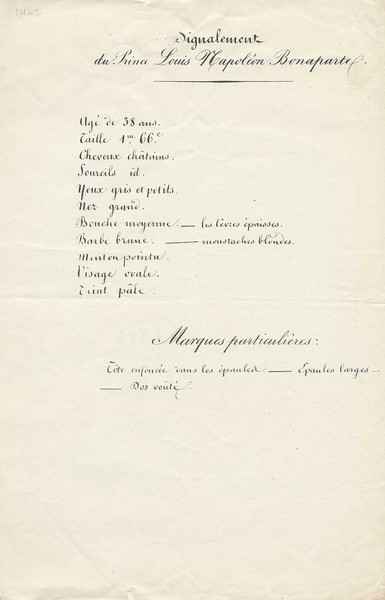 Signalement
du Prince Louis Napoléon Bonaparte.
Agé de 38 ans.
Taille 1m. 66.c
Cheveux châtains.
Sourcils id.
Yeux gris et petits.
Nez grand.
Bouche moyenne. — les lèvres épaisses.
Barbe brune. — moustaches blondes.
Menton pointu.
Visage ovale.
Teint pâle.
Marques particulières:
Tête enfoncée dans les épaules — Epaules larges —
— Dos voûté.